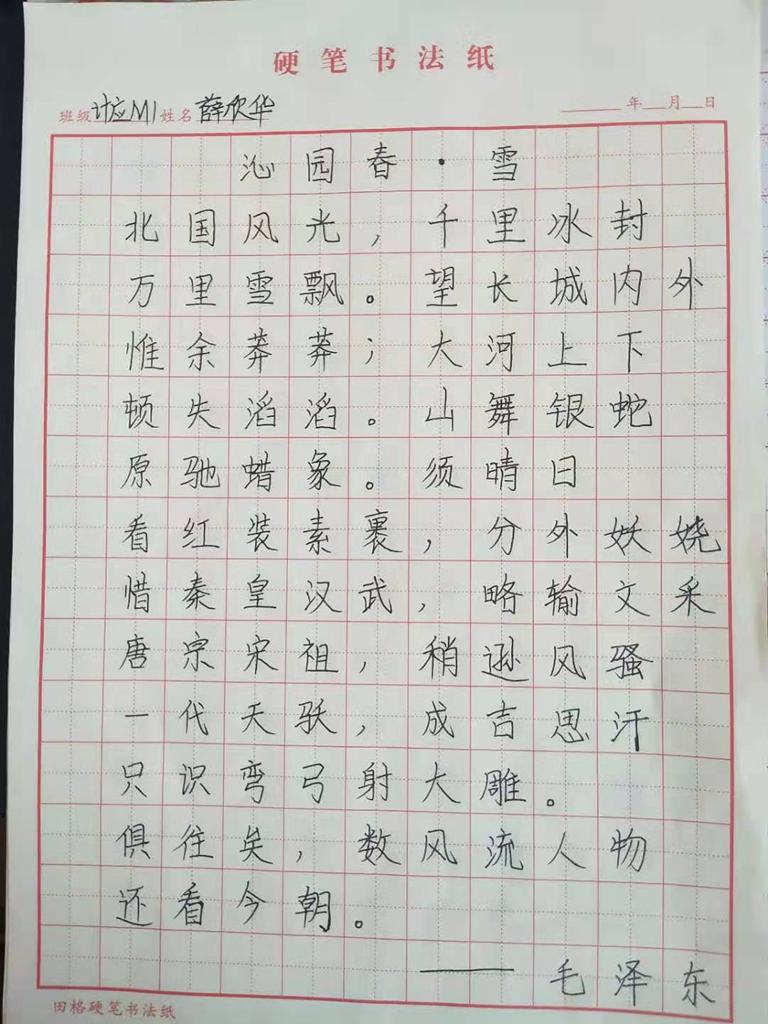 硬笔书法纸
班级计应M1姓名薛欣华 年 月 日
沁园春·雪
北国风光，千里冰封
万里雪飘。望长城内外
惟余莽莽；大河上下
顿失滔滔。山舞银蛇
原驰蜡象。须晴日
看红装素裹，分外妖娆
惜秦皇汉武，略输文采
唐宗宋祖，稍逊风骚
一代天骄，成吉思汗
只识弯弓射大雕。
俱往矣，数风流人物
还看今朝。
——毛泽东
田格硬笔书法纸